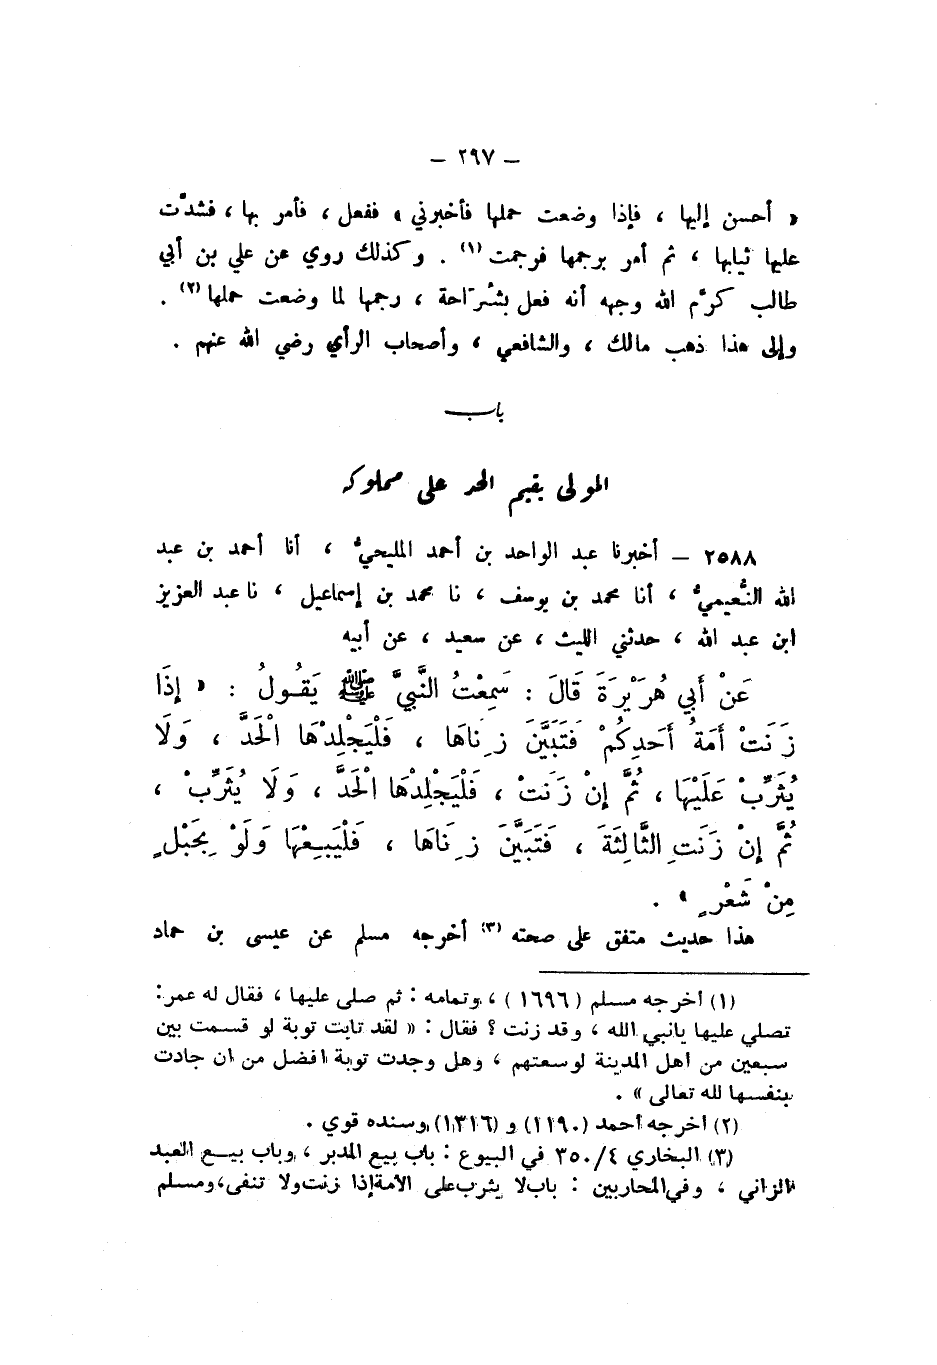 – ٢٩٧ –
« أحسن إليها ، فإذا وضعت حملها فأخبرني » ففعل ، فأمر بها ، فشدَّت
عليها ثيابها ، ثم أمر برجمها فرجمت (١) . وكذلك روي عن علي بن أبي
طالب كرَّم الله وجهه أنه فعل بشُرَاحة ، رجمها لما وضعت حملها (٢) .
وإلى هذا ذهب مالك ، والشافعي ، وأصحاب الرأي رضي الله عنهم .
باب
المولى يقيم الحد على مملوكه
٢٥٨٨ – أخبرنا عبد الواحد بن أحمد المليحيُّ ، أنا أحمد بن عبد
الله النُّعيميُّ ، أنا محمد بن يوسف ، نا محمد بن إسماعيل ، نا عبد العزيز
ابن عبد الله ، حدثني الليث ، عن سعيد ، عن أبيه
عَنْ أَبِي هُرَيْرَةَ قَالَ : سَمِعْتُ النَّبِيَّ ﷺ يَقُولُ : « إِذَا
زَنَتْ أَمَةُ أَحَدِكُمْ فَتَبَيَّنَ زِنَاهَا ، فَلْيَجْلِدْهَا الْحَدَّ ، وَلَا
يُثَرِّبْ عَلَيْهَا ، ثُمَّ إِنْ زَنَتْ ، فَلْيَجْلِدْهَا الْحَدَّ ، وَلَا يُثَرِّبْ ،
ثُمَّ إِنْ زَنَتِ الثَّالِثَةَ ، فَتَبَيَّنَ زِنَاهَا ، فَلْيَبِعْهَا وَلَوْ بِحَبْلٍ
مِنْ شَعْرٍ » .
هذا حديث متفق على صحته (٣) أخرجه مسلم عن عيسى بن حماد
(١) أخرجه مسلم ( ١٦٩٦ ) ، وتمامه : ثم صلى عليها ، فقال له عمر :
تصلي عليها يانبي الله ، وقد زنت ؟ فقال : « لقد تابت توبة لو قسمت بين
سبعين من أهل المدينة لوسعتهم ، وهل وجدت توبة أفضل من أن جادت
بنفسها لله تعالى » .
(٢) أخرجه أحمد (١١٩٠) و (١٣١٦) وسنده قوي .
(٣) البخاري ٣٥٠/٤ في البيوع : باب بيع المدبر ، وباب بيع العبد
الزاني ، وفي المحاربين : باب لا يثرب على الأمة إذا زنت ولا تنفى ، ومسلم